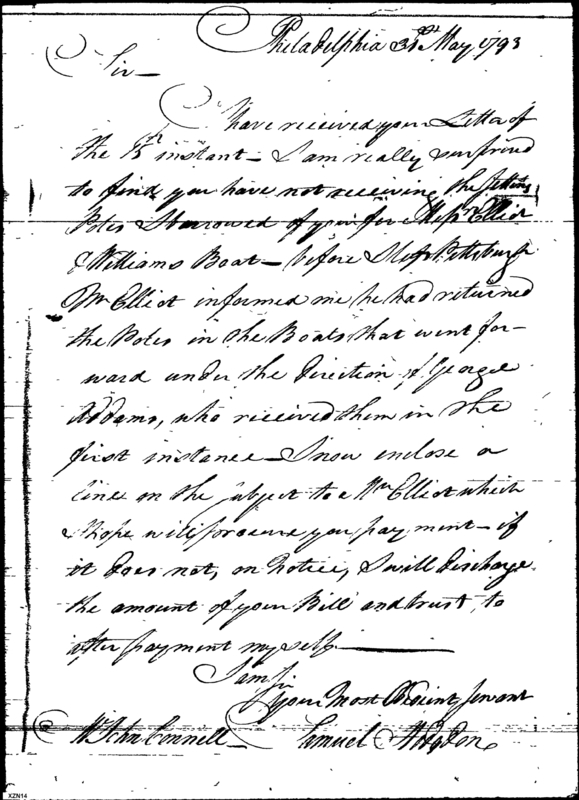 Philadelphia 31st May 1793
Sir—
I have received your Letter of
the 15th instant— I am really surprised
to find you have not receiving the setting
Poles I borrowed of you for Messrs Elliot
& Williams Boat— before I left Pittsburgh
Mr Elliot informed me he had returned
the Poles in the Boats that went for-
ward under the direction of George
Addams, who received them in the
first instance— I now enclose a
line on the subject to Mr Elliot which
I hope will procure you payment— if
it does not, on notice, I will discharge
the amount of your Bill and trust to
after payment myself—
I am Sir
Your Most Obedient Servant
Mr John Connell— Samuel Hodgdon
XZN14